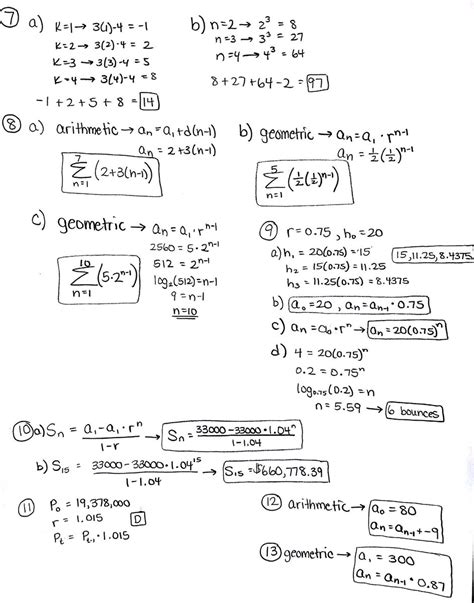 7 a) K=1→ 3(1)-4 = -1
K=2→ 3(2)-4 = 2
K=3 → 3(3)-4 = 5
K=4→ 3(4)-4 = 8
-1 + 2 + 5 + 8 = 14
b) n=2→ 2³ = 8
n=3 → 3³ = 27
n=4→ 4³ = 64
8+27+64-2 = 97
8 a) arithmetic → aₙ=a₁+d(n-1)
aₙ = 2+3(n-1)
7
Σ (2+3(n-1))
n=1
b) geometric → aₙ=a₁·rⁿ⁻¹
aₙ = ½(½)ⁿ⁻¹
5
Σ (½(½)ⁿ⁻¹)
n=1
c) geometric → aₙ=a₁·rⁿ⁻¹
2560 = 5·2ⁿ⁻¹
512 = 2ⁿ⁻¹
log₂(512)=n-1
9 = n-1
n=10
10
Σ (5·2ⁿ⁻¹)
n=1
9 r=0.75, h₀=20
a) h₁ = 20(0.75)=15
h₂ = 15(0.75) = 11.25
h₃ = 11.25(0.75)=8.4375
15, 11.25, 8.4375
b) a₀=20, aₙ=aₙ₋₁·0.75
c) aₙ=a₀·rⁿ→ aₙ=20(0.75)ⁿ
d) 4 = 20(0.75)ⁿ
0.2 = 0.75ⁿ
log₀.₇₅(0.2) = n
n = 5.59 → 6 bounces
10 a) Sₙ = a₁-a₁·rⁿ / 1-r → Sₙ = 33000-33000·1.04ⁿ / 1-1.04
b) S₁₅ = 33000-33000·1.04¹⁵ / 1-1.04 → S₁₅=$660,778.39
11 P₀ = 19,378,000
r = 1.015 D
Pₜ = Pₜ₋₁·1.015
12 arithmetic → a₀=80
aₙ=aₙ₋₁+-9
13 geometric → a₁ = 300
aₙ = aₙ₋₁·0.87